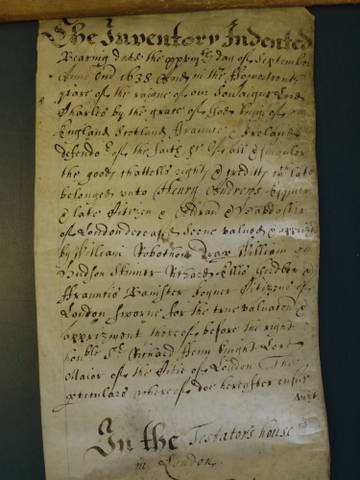 The Inventory Indented
Bearing date the xxviijth day of September
Anno Dni 1638 And in the ffowerteenth
yeare of the raigne of our Soveraigne Lord
Charles by the grace of God king of
England Scotland ffrannce & Ireland
defendor of the faith &c of all & singuler
the goods chattells rights & creditts wch late
belonged unto Henry Andrews Esquier
& late Citizen & Aldrman & Haberdasher
of London deceased Seene valued & apprized
by William Robothom Drap William
Hudson Skinner Richard Ellis Girdler &
ffrauncis Banister Joyner Citizens of
London sworne for the true valuation &
apprizment thereof before the right
honble Sr Richard ffenn knight Lord
Maior of the Citie of London The
pticulars whereof doe hereafter ensue
vizt
In the Testators house
in London